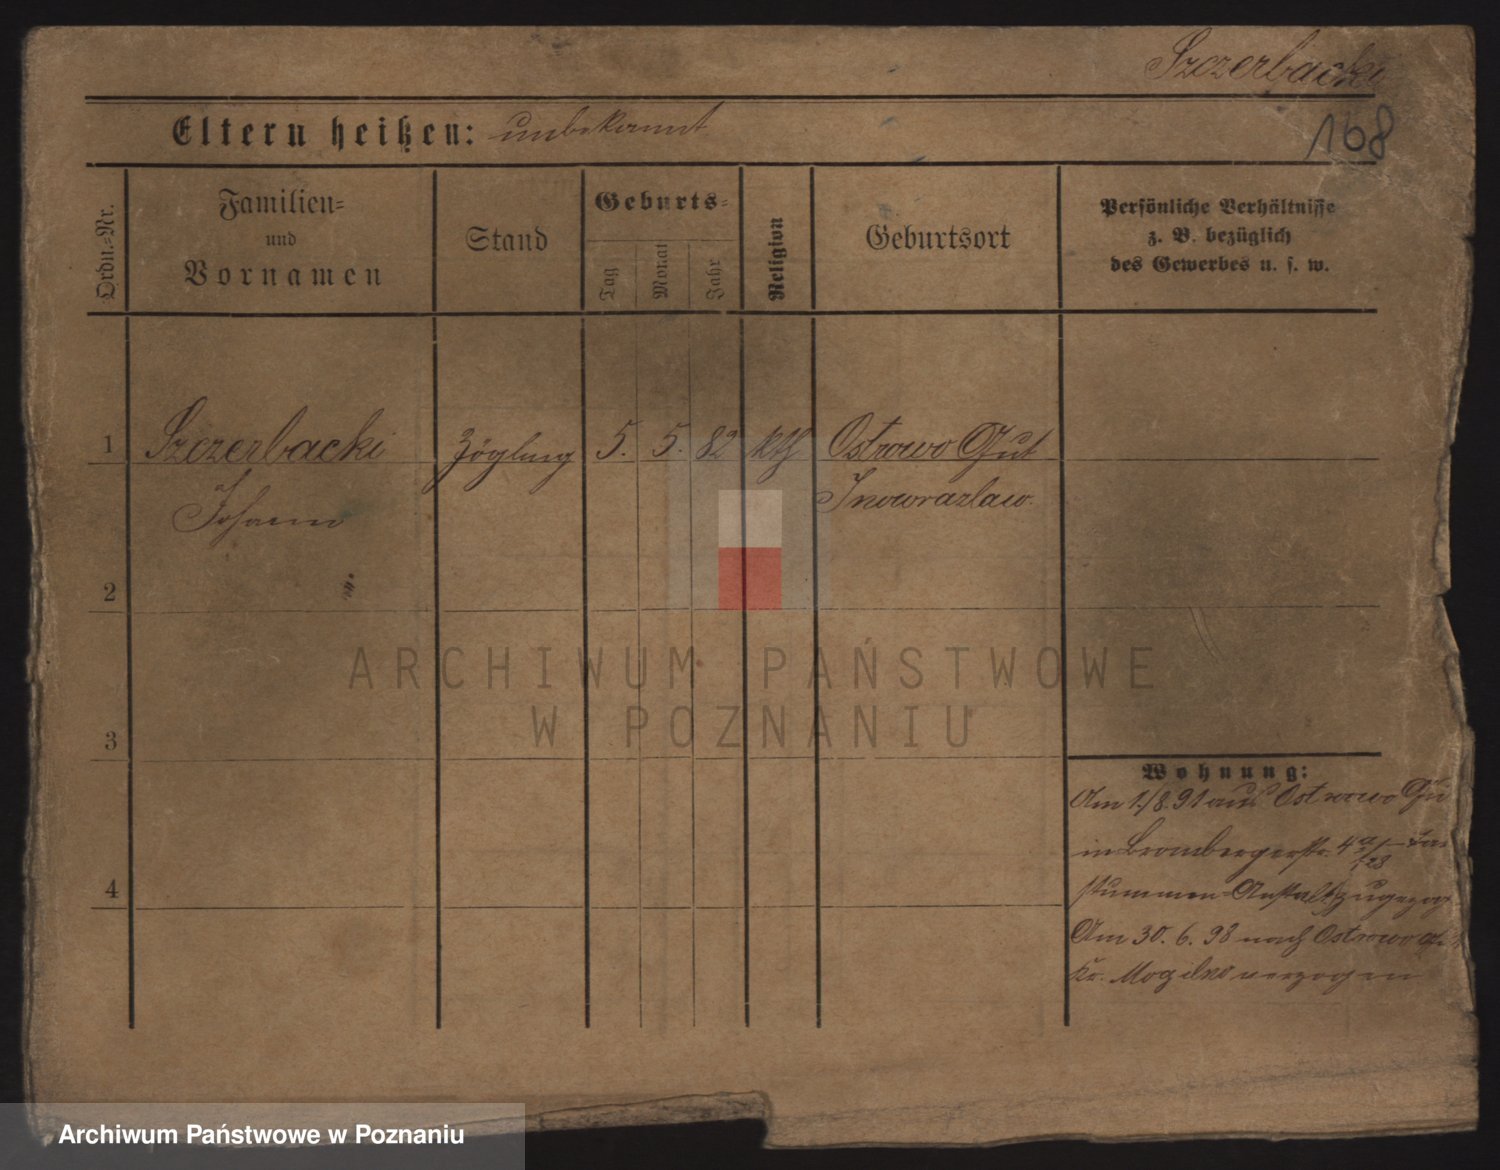 Szczerbacki
168
Eltern heißen: unbekannt
Ordn.-Nr.
Familien-
und
Vornamen
Stand
Geburts-
Tag
Monat
Jahr
Religion
Geburtsort
Persönliche Verhältnisse
z. B. bezüglich
des Gewerbes u. s. w.
1 Szczerbacki Zögling 5. 5. 82 kth Ostrowo Gut
Johann Inowrazlaw.
2
3
4
Wohnung:
Am 1./8.91 aus Ostrowo Gu
in Brombergerstr. 4a
stummen-Anstalt zugezog
Am 30. 6. 98 nach Ostrowo
Kr. Mogilno verzogen
ARCHIWUM PAŃSTWOWE
W POZNANIU
Archiwum Państwowe w Poznaniu